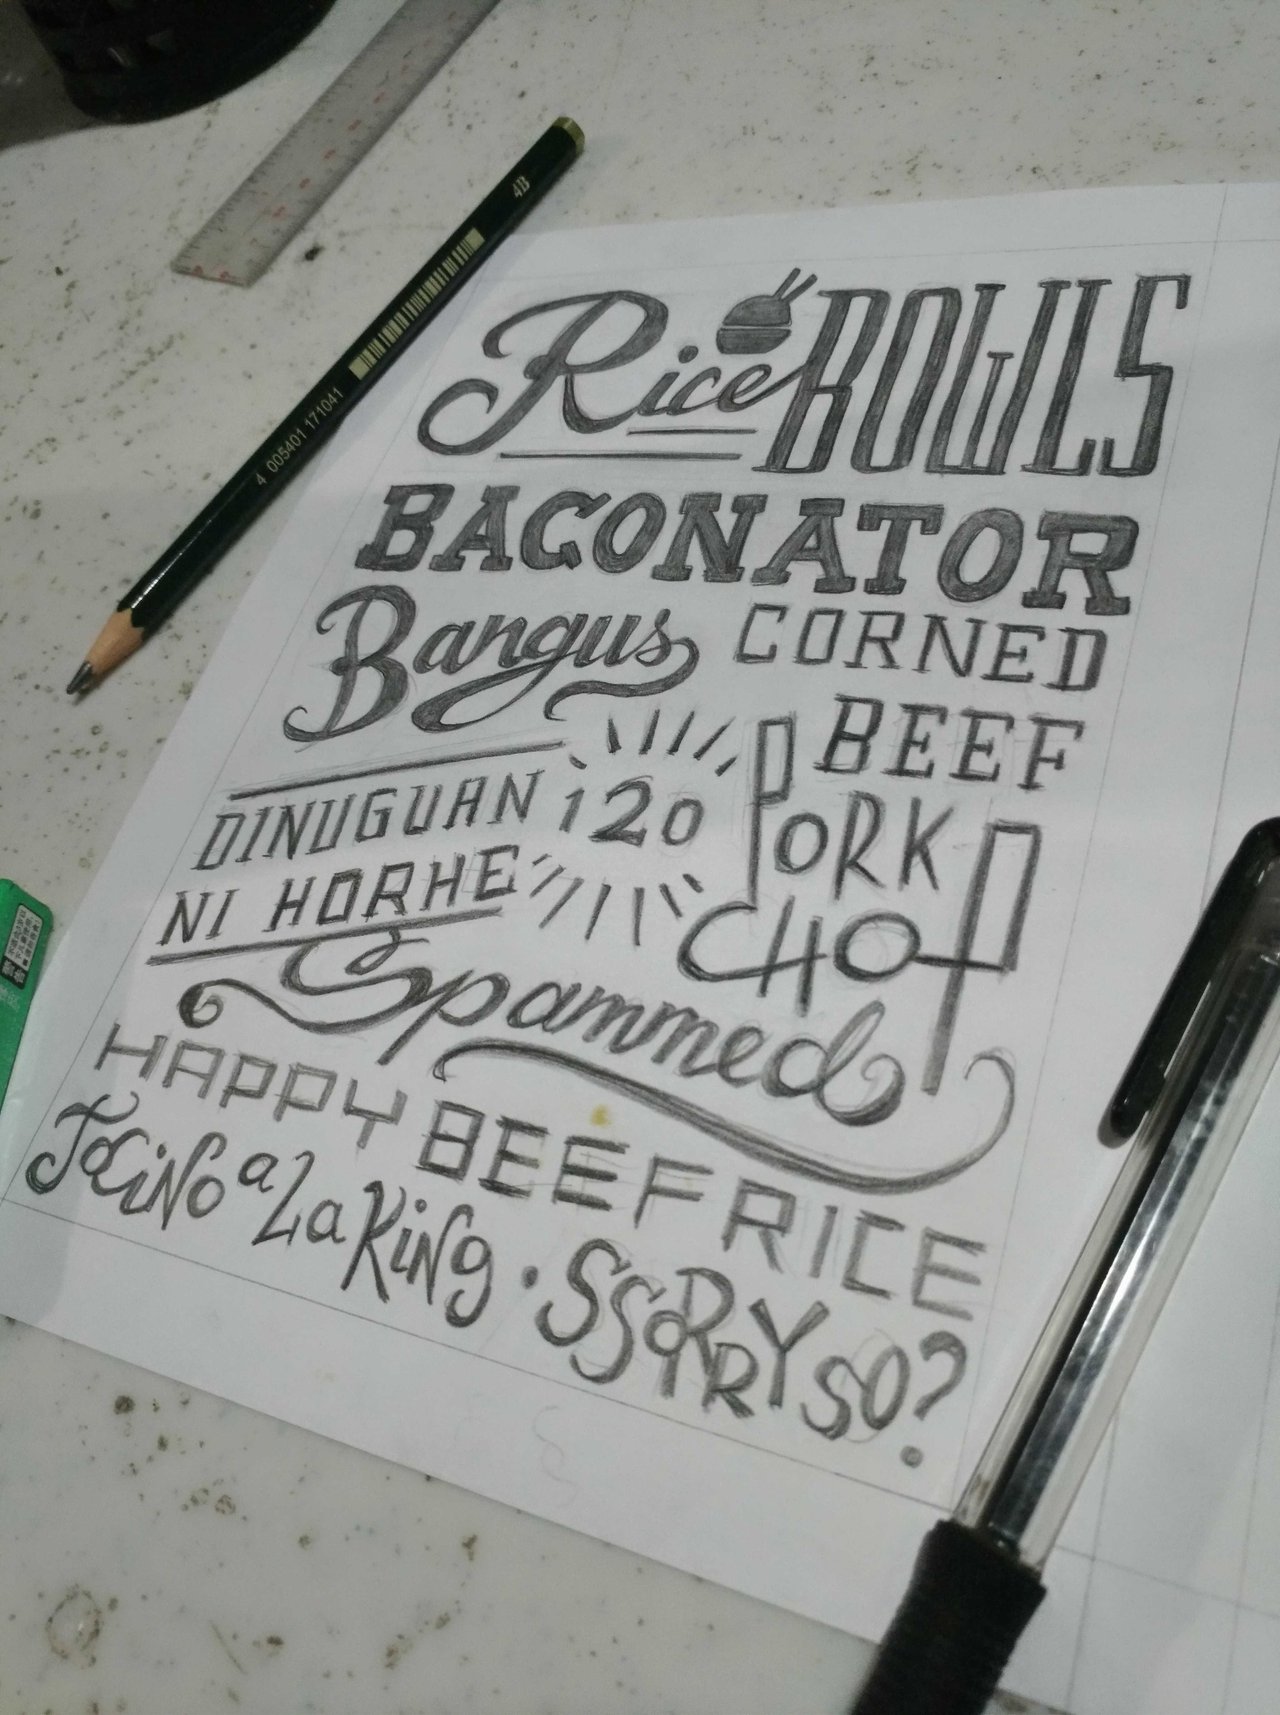 4B
4 005401 171041
Rice BOWLS
BACONATOR
Bangus CORNED
BEEF
DINUGUAN 120 PORK
NI HORHE CHOP
Spammed
HAPPY BEEF RICE
TOCiNO a La KiNg · SSORRY SO?